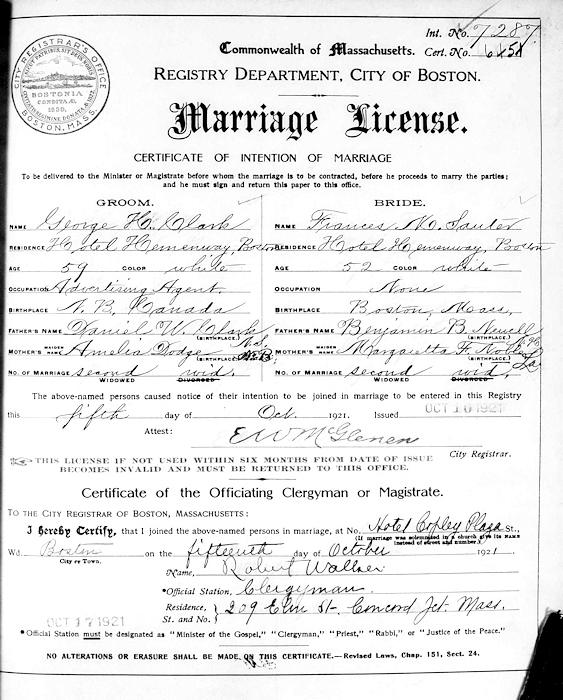 Int. No. 7287
Commonwealth of Massachusetts. Cert. No.
REGISTRY DEPARTMENT, CITY OF BOSTON.
CITY REGISTRAR'S OFFICE
BOSTONIA
CONDITA A.D.
1630.
BOSTON, MASS.
Marriage License.
CERTIFICATE OF INTENTION OF MARRIAGE
To be delivered to the Minister or Magistrate before whom the marriage is to be contracted, before he proceeds to marry the parties;
and he must sign and return this paper to this office.
GROOM. BRIDE.
NAME George H. Clark NAME Frances M. Sauter
RESIDENCE Hotel Hemenway, Boston RESIDENCE Hotel Hemenway, Boston
AGE 59 COLOR white AGE 52 COLOR white
OCCUPATION Advertising Agent OCCUPATION None
BIRTHPLACE N. B. Canada BIRTHPLACE Boston, Mass.
FATHER'S NAME Daniel W. Clark (BIRTHPLACE) N.S. FATHER'S NAME Benjamin B. Newell (BIRTHPLACE)
MOTHER'S MAIDEN NAME Amelia Dodge (BIRTHPLACE) N.B. MOTHER'S MAIDEN NAME Margaretta F. (BIRTHPLACE) La
NO. OF MARRIAGE second wid. NO. OF MARRIAGE second wid.
WIDOWED DIVORCED WIDOWED DIVORCED
The above-named persons caused notice of their intention to be joined in marriage to be entered in this Registry
this fifth day of Oct. 1921. Issued OCT 10 1921
Attest: E W McGlenen
City Registrar.
THIS LICENSE IF NOT USED WITHIN SIX MONTHS FROM DATE OF ISSUE
BECOMES INVALID AND MUST BE RETURNED TO THIS OFFICE.
Certificate of the Officiating Clergyman or Magistrate.
TO THE CITY REGISTRAR OF BOSTON, MASSACHUSETTS:
I hereby Certify, that I joined the above-named persons in marriage, at No. Hotel Copley Plaza St.,
(If marriage was solemnized in a church give its NAME
instead of street and number.)
Wd. Boston on the fifteenth day of October 1921.
City or Town.
Name, Robert Walker
*Official Station, Clergyman.
Residence, St. and No. 209 Elm St. Concord Jct. Mass.
OCT 17 1921
*Official Station must be designated as "Minister of the Gospel," "Clergyman," "Priest," "Rabbi," or "Justice of the Peace."
NO ALTERATIONS OR ERASURE SHALL BE MADE ON THIS CERTIFICATE.—Revised Laws, Chap. 151, Sect. 24.